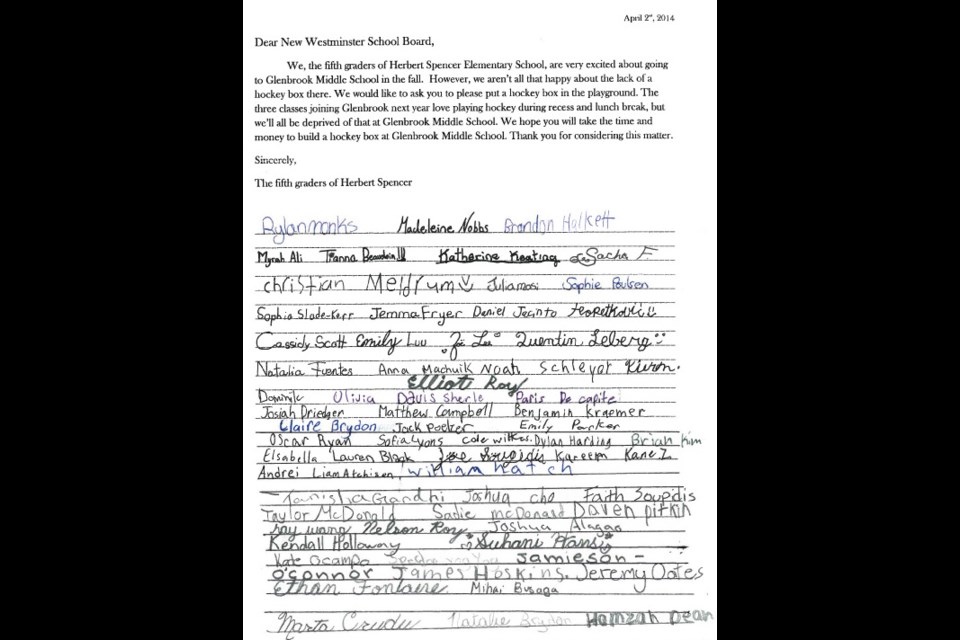 April 2ⁿᵈ, 2014
Dear New Westminster School Board,
We, the fifth graders of Herbert Spencer Elementary School, are very excited about going
to Glenbrook Middle School in the fall. However, we aren't all that happy about the lack of a
hockey box there. We would like to ask you to please put a hockey box in the playground. The
three classes joining Glenbrook next year love playing hockey during recess and lunch break, but
we'll all be deprived of that at Glenbrook Middle School. We hope you will take the time and
money to build a hockey box at Glenbrook Middle School. Thank you for considering this matter.
Sincerely,
The fifth graders of Herbert Spencer
Rylan monks Madeleine Nobbs Brandon Halkett
Myrah Ali Katherine Keating Sacha F
christian Meldrum Sophie Poulsen
Sophia Slade-Kerr Jemma Fryer Daniel Jecinto
Cassidy Scott Emily Luu Quentin Leberg
Natalia Fuentes Anna Machuik Noah Schleyer
Elliot Roy
Dominic Olivia Davis Sherle Paris De capite
Josiah Driedger Matthew Campbell Benjamin Kraemer
Claire Brydon Jack Poelzer Emily Parker
Oscar Ryan Sofia Lyons cole Dylan Harding Brian Kim
Elsabella Lauren Black Kareem Kane Z
Andrei Liam Atchison, William hatch
Tanisha Gandhi Joshua cho Faith Soupidis
Taylor McDonald Sadie mcDonald Daven pitkin
ray wang Nelson Roy Joshua Alagao
Kendall Holloway Suhani Hans
Kate Ocampo Jamieson -
O'connor James Hoskins. Jeremy Oates
Ethan Fontaine Mihai Busaga
Marta Natalie Brydon Hamzah Dean